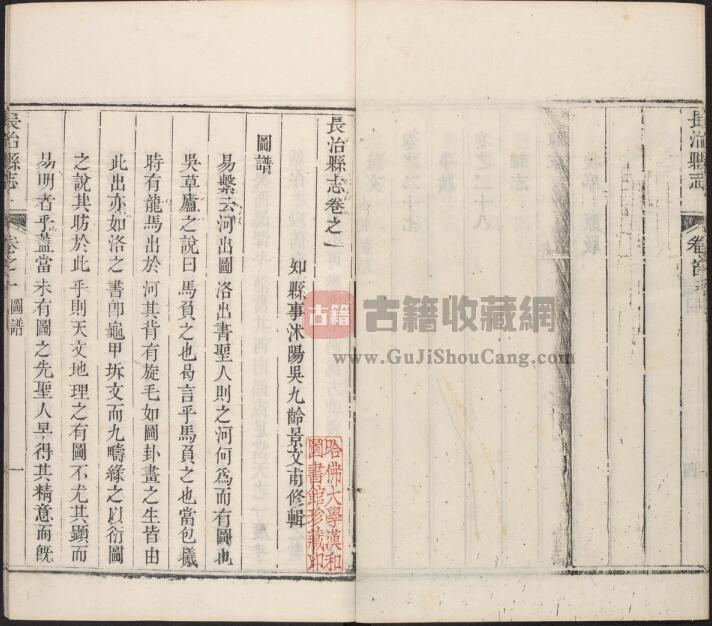 長治縣志卷之一
知縣事沭陽吳九齡景文甫修輯
圖譜
易繫云河出圖洛出書聖人則之河何爲而有圖也
吳草廬之說曰馬負之也曷言乎馬負之也當包犧
時有龍馬出於河其背有旋毛如圖卦畫之生皆由
此出亦如洛之書卽龜甲坼文而九疇緣之以衍圖
之說其昉於此乎則天文地理之有圖不尤其顯而
易明者乎蓋當未有圖之先聖人早得其精意而旣
長治縣志
卷之一
圖譜
一
長治縣志
卷首
哈佛大學漢和
圖書館珍藏印
古籍
古籍收藏網
www.GuJiShouCang.com